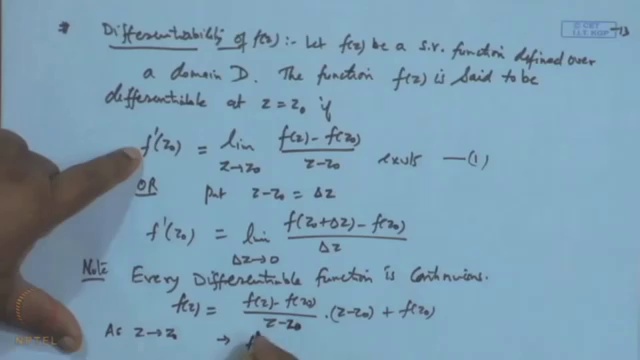 * Differentiability of f(z) :- Let f(z) be a s.v. function defined over
a domain D. The function f(z) is said to be
differentiable at z = z₀ if
f'(z₀) = lim z→z₀ (f(z) - f(z₀))/(z - z₀) exists —(1)
OR put z - z₀ = Δz
f'(z₀) = lim Δz→0 (f(z₀+Δz) - f(z₀))/Δz
Note Every Differentiable function is Continuous.
f(z) = (f(z) - f(z₀))/(z - z₀) · (z - z₀) + f(z₀)
As z → z₀ → f'
© CET
I.I.T. KGP
NPTEL